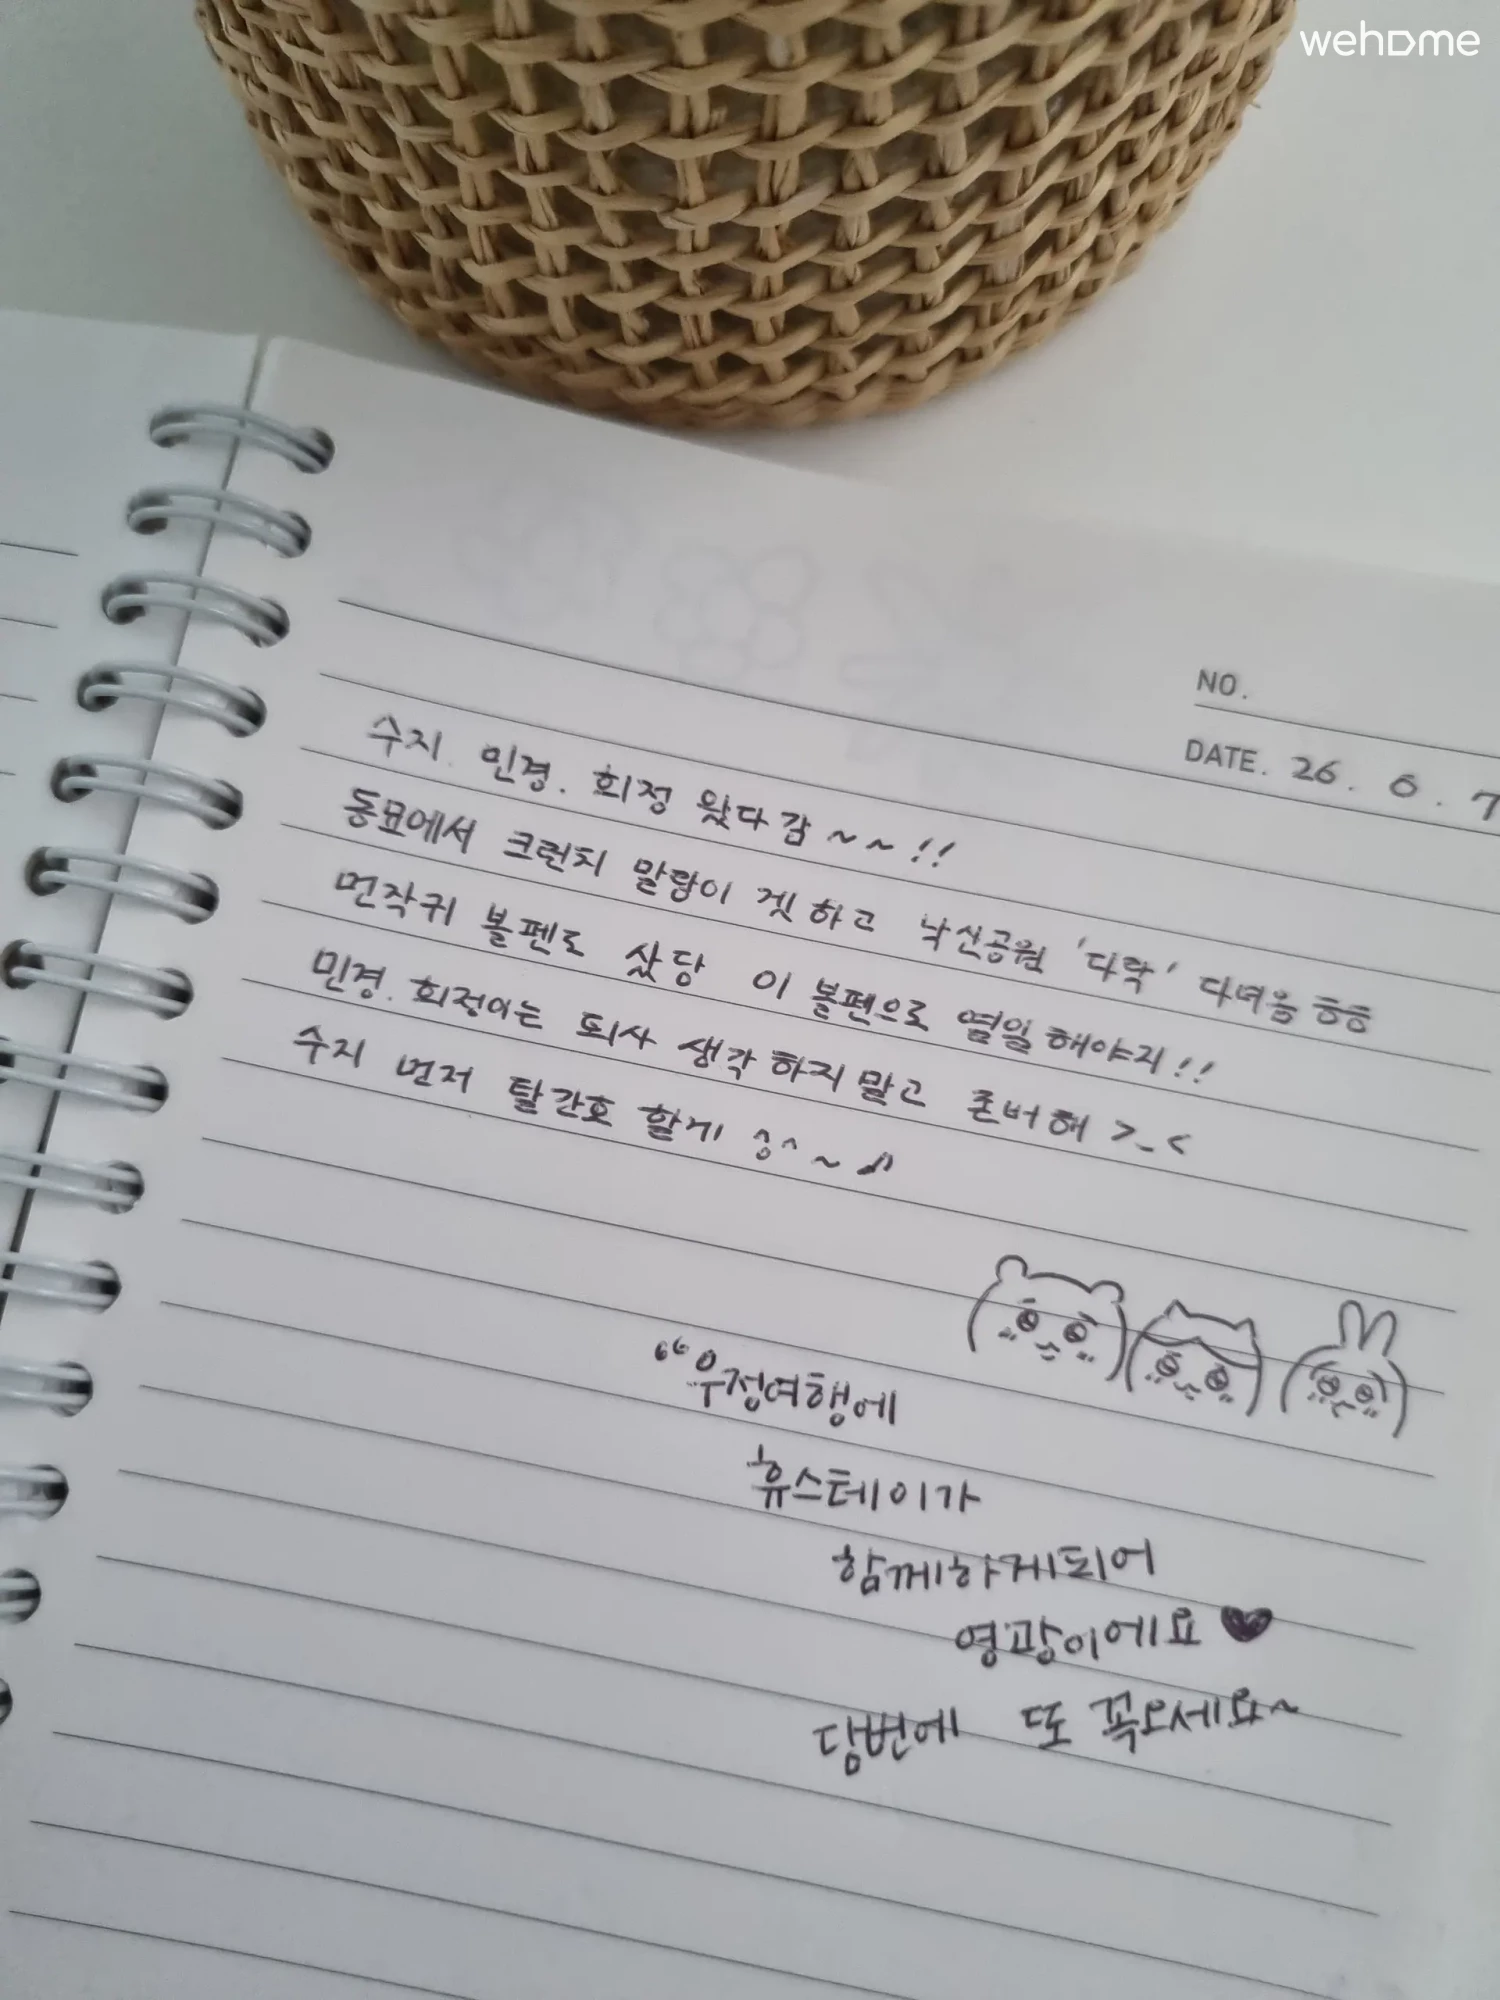 wehome
NO.
DATE. 26. 6. 7
수지. 민경. 희정 왔다감~~!!
동묘에서 크런치 말랑이 겟하고 낙산공원 '다락' 다녀옴 ㅎㅎ
먼작귀 볼펜도 샀당 이 볼펜으로 열일해야지!!
민경. 희정이는 퇴사 생각하지말고 존버해 >_<
수지 먼저 탈간호 할게 ^^~♪
“우정여행에
휴스테이가
함께하게되어
영광이에요 ♥
담번에 또 꼭오세요~